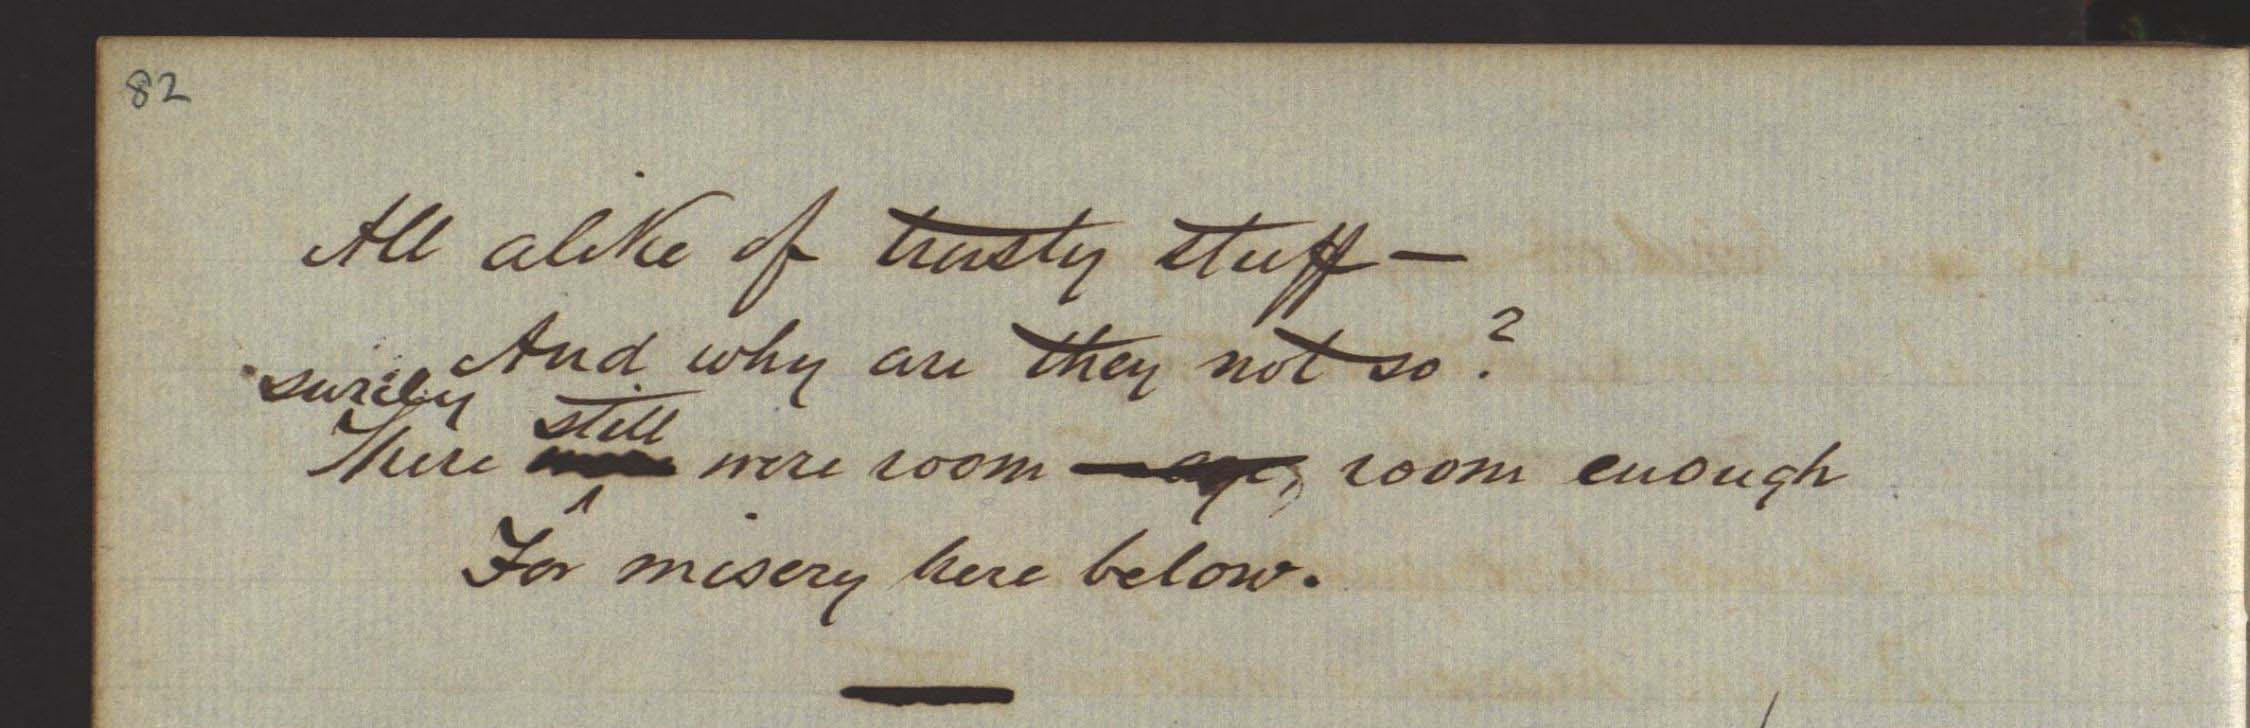 82
All alike of trusty stuff —
And why are they not so?
surely
still
There were room — room enough
For misery here below.